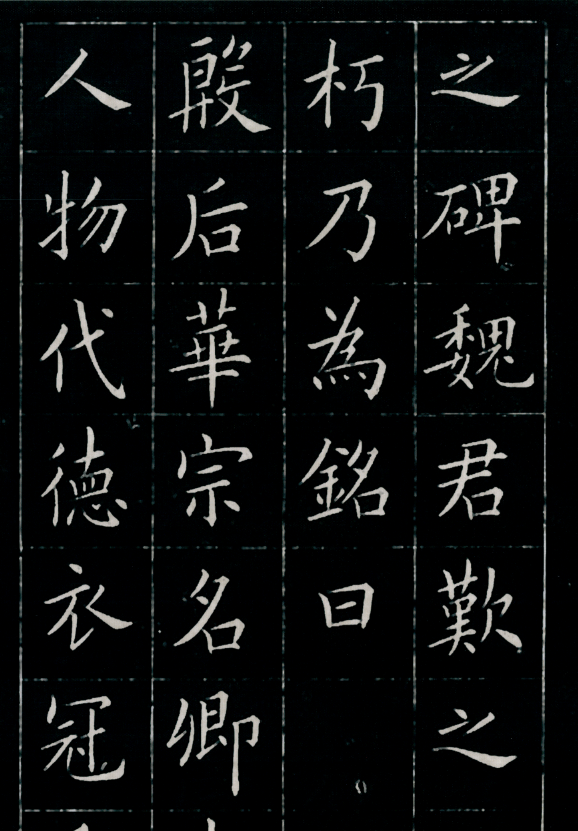 之碑魏君歎之
朽乃為銘曰
殷后華宗名卿
人物代德衣冠